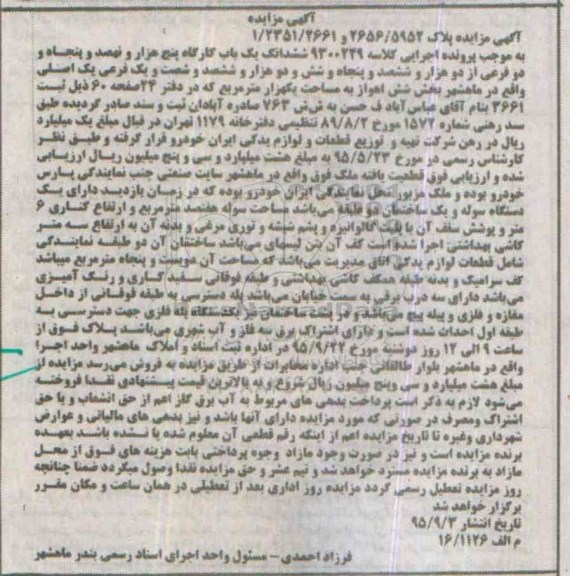 آگهی مزایده
آگهی مزایده پلاک ۲۶۵۶/۵۹۵۲ و ۱/۲۳۵۱/۲۶۶۱
به موجب پرونده اجرایی کلاسه ۹۳۰۰۲۳۹ ششدانگ یک باب کارگاه پنج هزار و نهصد و پنجاه و
دو فرعی از دو هزار و ششصد و پنجاه و شش و دو هزار و ششصد و شصت و یک فرعی یک اصلی
واقع در ماهشهر بخش شش اهواز به مساحت یکهزار مترمربع که در دفتر ۲۴ صفحه ۶۰ ذیل ثبت
۳۶۶۱ بنام آقای عباس آباد ف حسن به ش ش ۷۶۳ صادره آبادان ثبت و سند صادر گردیده طبق
سند رهنی شماره ۱۵۷۲ مورخ ۸۹/۸/۲ تنظیمی دفترخانه ۱۱۷۹ تهران در قبال مبلغ یک میلیارد
ریال در رهن شرکت تهیه و توزیع قطعات و لوازم یدکی ایران خودرو قرار گرفته و طبق نظر
کارشناس رسمی در مورخ ۹۵/۵/۲۳ به مبلغ هشت میلیارد و سی و پنج میلیون ریال ارزیابی
شده و ارزیابی فوق قطعیت یافته ملک فوق واقع در ماهشهر سایت صنعتی جنب نمایندگی پارس
خودرو بوده و ملک مزبور محل نمایندگی ایران خودرو بوده که در زمان بازدید دارای یک
دستگاه سوله و یک ساختمان دو طبقه می باشد مساحت سوله هفتصد مترمربع و ارتفاع کناری ۶
متر و پوشش سقف آن با پلیت گالوانیزه و پشم شیشه و توری مرغی و بدنه آن به ارتفاع سه متر
کاشی بهداشتی اجرا شده است کف آن بتن لیسه‌ای می‌باشد ساختمان آن دو طبقه نمایندگی
شامل قطعات لوازم یدکی اتاق مدیریت می‌باشد که مساحت آن دویست و پنجاه مترمربع میباشد
کف سرامیک و بدنه طبقه همکف کاشی بهداشتی و طبقه فوقانی سفید کاری و رنگ آمیزی
می‌باشد دارای سه درب برقی به سمت خیابان می‌باشد پله دسترسی به طبقه فوقانی از داخل
مغازه و فلزی و پیله پیچ می‌باشد و در پشت ساختمان نیز یک دستگاه پله فلزی جهت دسترسی به
طبقه اول احداث شده است و دارای اشتراک برق سه فاز و آب شهری می‌باشد پلاک فوق از
ساعت ۹ الی ۱۲ روز دوشنبه مورخ ۹۵/۹/۲۲ در اداره ثبت اسناد و املاک ماهشهر واحد اجرا
واقع در ماهشهر بلوار طالقانی جنب اداره مخابرات از طریق مزایده به فروش می‌رسد مزایده از
مبلغ هشت میلیارد و سی وپنج میلیون ریال شروع و به بالاترین قیمت پیشنهادی نقدا فروخته
می‌شود لازم به ذکر است پرداخت بدهی های مربوط به آب برق گاز اعم از حق انشعاب و یا حق
اشتراک ومصرف در صورتی که مورد مزایده دارای آنها باشد و نیز بدهی های مالیاتی و عوارض
شهرداری وغیره تا تاریخ مزایده اعم از اینکه رقم قطعی آن معلوم شده یا نشده باشد بعهده
برنده مزایده است و نیز در صورت وجود مازاد وجوه پرداختی بابت هزینه های فوق از محل
مازاد به برنده مزایده مسترد خواهد شد و نیم عشر و حق مزایده نقدا وصول میگردد ضمنا چنانچه
روز مزایده تعطیل رسمی گردد مزایده روز اداری بعد از تعطیلی در همان ساعت و مکان مقرر
برگزار خواهد شد
تاریخ انتشار ۹۵/۹/۳
م الف ۱۶/۱۱۲۶
فرزاد احمدی – مسئول واحد اجرای اسناد رسمی بندر ماهشهر